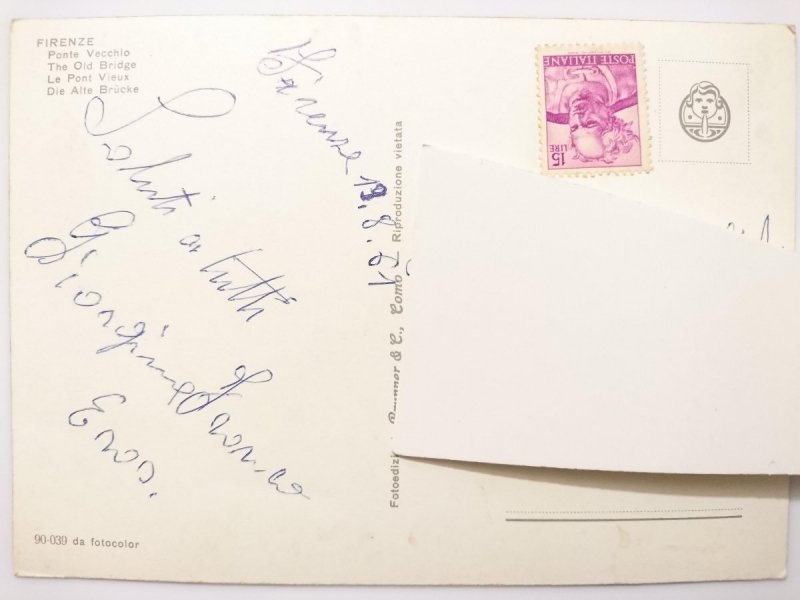 FIRENZE
Ponte Vecchio
The Old Bridge
Le Pont Vieux
Die Alte Brücke
Firenze 19.8.67
Saluti a tutti
Giorgina Franco
Eros.
POSTE ITALIANE
15 LIRE
Fotoedizi & C., Como Riproduzione vietata
90-039 da fotocolor